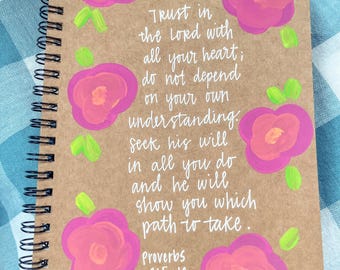 Trust in
the Lord with
all your heart;
do not depend
on your own
understanding.
Seek his will
in all you do
and he will
show you which
path to take.
Proverbs